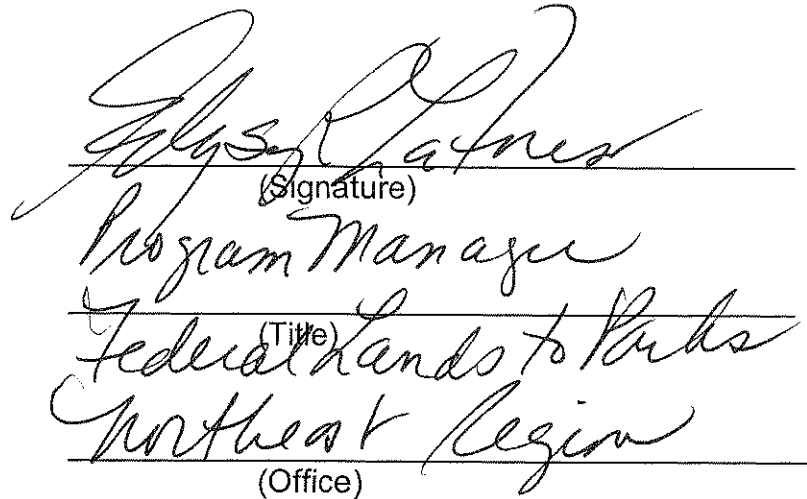 (Signature)
Program Manager
(Title)
Federal Lands to Parks
Northeast Region
(Office)